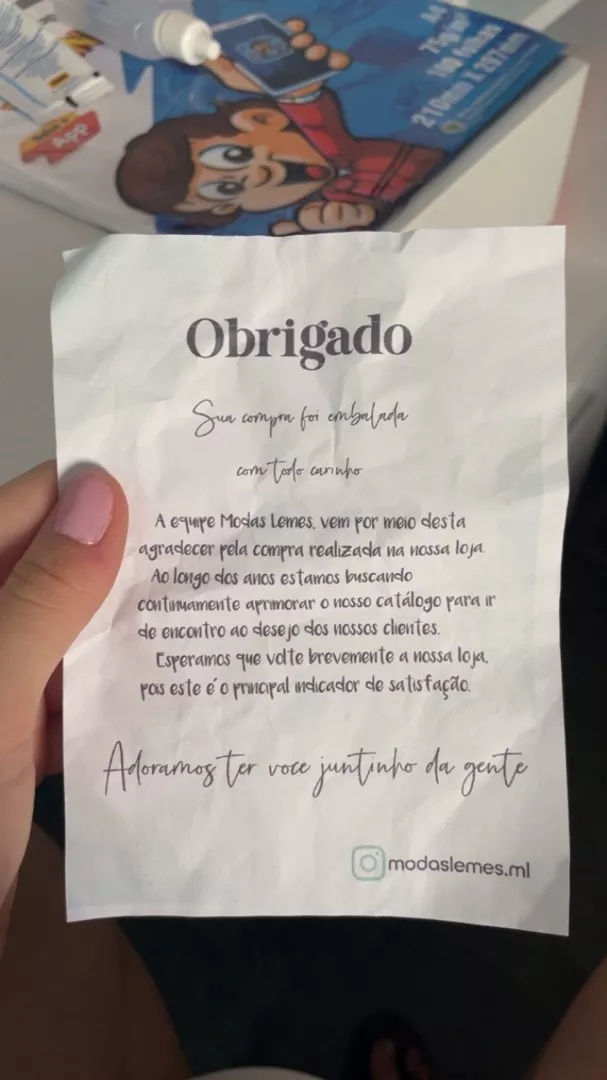 APP
A4
75g/m²
100 folhas
210mm x 297mm
Obrigado
Sua compra foi embalada
com todo carinho
A equipe Modas Lemes, vem por meio desta
agradecer pela compra realizada na nossa loja.
Ao longo dos anos estamos buscando
continuamente aprimorar o nosso catálogo para ir
de encontro ao desejo dos nossos clientes.
Esperamos que volte brevemente a nossa loja,
pois este é o principal indicador de satisfação.
Adoramos ter voce juntinho da gente
modaslemes.ml